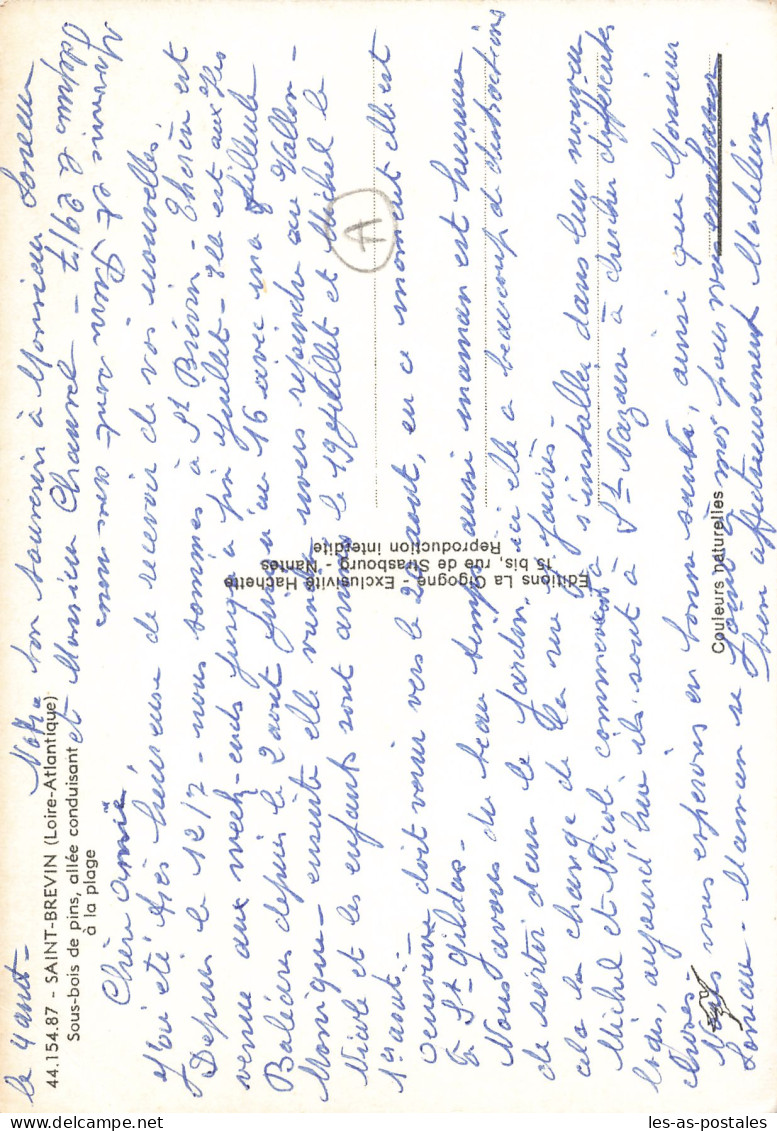 le 4 août -
Notre bon souvenir à Monsieur Loreau
et Monsieur Chauvel -
Yvonnic et Pierre sont avec nous
depuis le 29/7
44.154.87 - SAINT-BREVIN (Loire-Atlantique)
Sous-bois de pins, allée conduisant
à la plage
Chère Amie,
J'ai été très heureuse de recevoir de vos nouvelles.
Depuis le 12/7 - nous sommes à St Brévin - est
venue aux week-ends jusqu'à fin Juillet - elle est aux Iles
Baléares depuis le 2 août jusqu'au 16 avec ma filleule
Monique - ensuite elle viendra nous rejoindre au Vallon -
Nicole et les enfants sont arrivés le 19 Juillet et Michel le
1er août -
Geneviève doit venir vers le août, en ce moment elle est
à St Gildas -
Nous avons du beau temps aussi maman est heureuse
de sortir dans le jardin, ici elle a beaucoup de distractions
cela la change de la rue J. Jaurès -
Michel et Nicole commencent à s'installer dans leur nouveau
logis, aujourd'hui ils sont à St Nazaire à chercher différentes
choses -
vous espérons en bonne santé, ainsi que Monsieur
Loreau - Maman se joint à moi pour vous embrasser
bien affectueusement Madeleine
A
Editions La Cigogne - Exclusivité Hachette
15 bis, rue de Strasbourg - Nantes
Reproduction interdite
Couleurs naturelles
les-as-postales